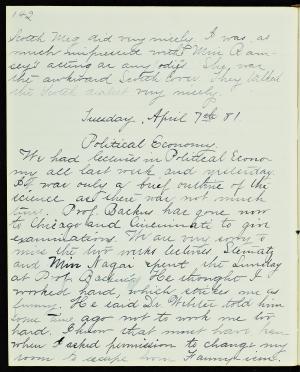 142
Scotch Meg did very nicely. I was as
much impressed with Miss Ram-
sey's acting as any body's. She was
the awkward Scotch lover. They talked
the Scotch dialect very nicely.
Tuesday, April 81.
Political Economy.
We had lectures in Political Econo-
my all last week and yesterday.
It was only a brief outline of the
science as there was not much
time. Prof. Backus has gone now
to Chicago and Cincinnati to give
examinations. We are very sorry to
miss the two weeks lectures.
and Miss Hagar spent the Sunday
at Prof. Backus'. He thought I
worked hard, which strikes me as
funny. He said Dr. Webster told him
some time ago not to work me too
hard. I know that must have been
when I asked permission to change my
room to escape from